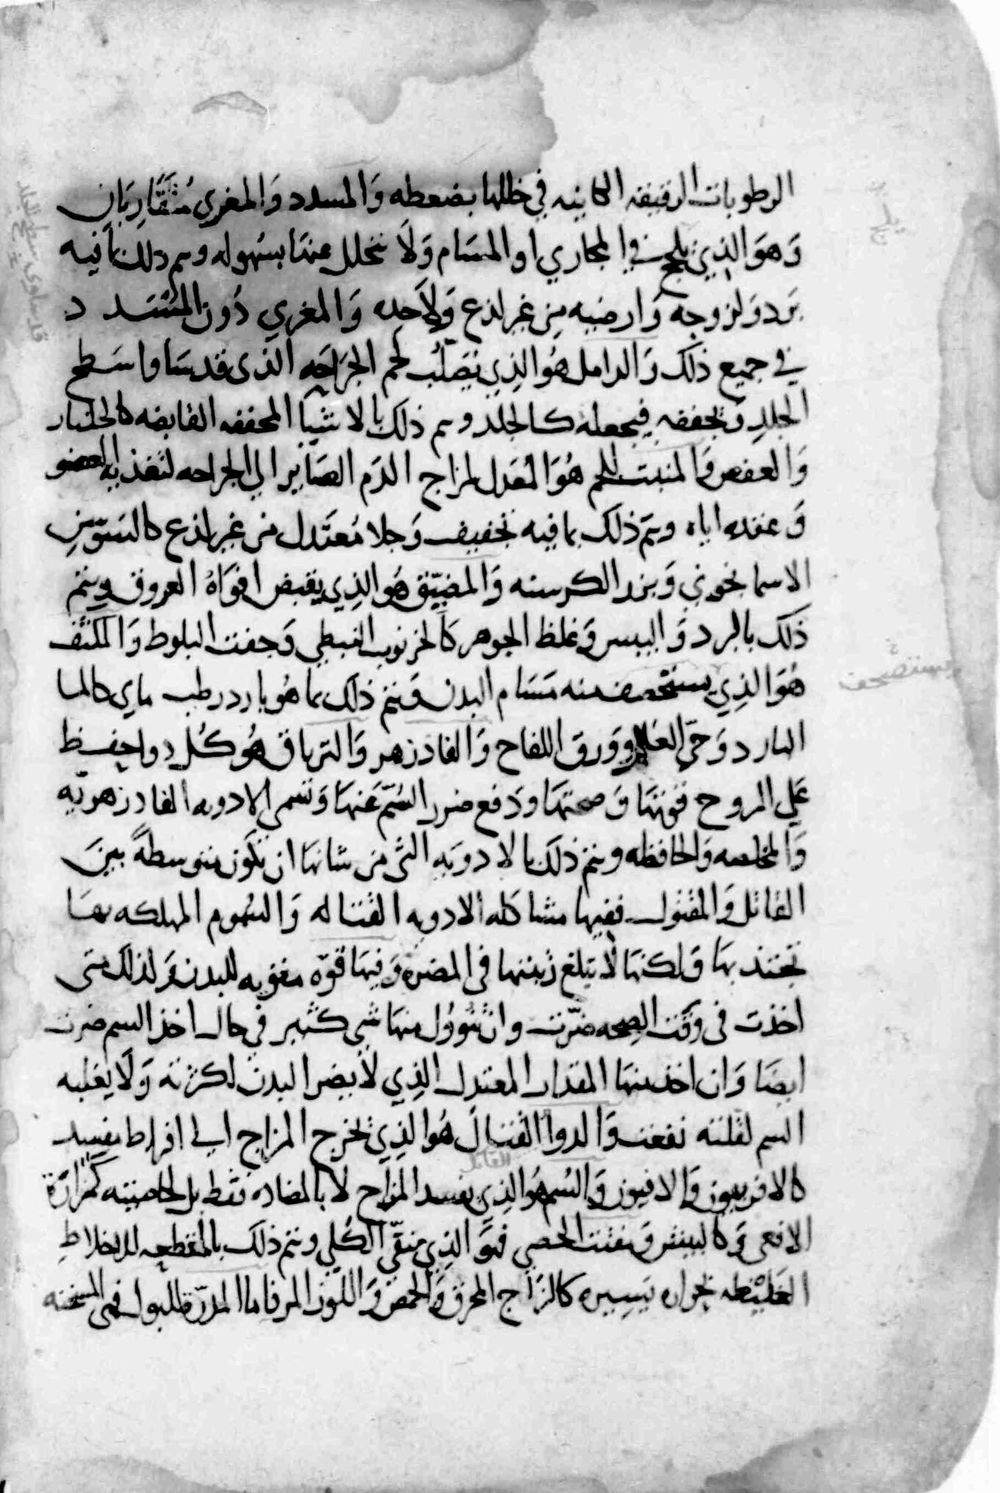 الرطوبات الرقيقه الكاينه في خللها بضعطه وَالمسدد وَالمغري مُتقَارِبَانِ
وَهوَ الذِي يلحج في المجاري او المسَام وَلَا يتحلل عنهَا بسُهوله ويتم ذلك بمَا فيه
بَرد وَلزوجه وَارضيه مِن غير لذع وَلاحده وَالمغري دُون المُسَدد
في جميع ذلكَ وَالدامل هُوَ الذِي يُصَلِّبُ لحم الجرَاحَه الذى قد سَاوا سَطح
الجلدِ وَيجففه فيجعله كالجلد ويتم ذلك بالاشيَا المجففه القابضه كالجلنار
وَالعفص وَالمنبت للحم هُوَ المُعَدل لمزاج الدَم الصَاير الي الجراحه لتغذيه العضو
وَعقده اياه ويتم ذلكَ بما فيه تجفيف وَجلا مُعتَدل من غير لذع كالسَوسَن
الاسمانجوني وَبزر الكرسنه وَالمضيّق هُو الذِي يقبض افوَاهُ العروق ويتم
ذلكَ بالبرد وَاليبس وَغلظ الجوهر كَالخرنوب النبطي وَجفت البلوط وَالمكثف
هُوَ الذِي يستحصف منه مَسَام البدن وَيتم ذلكَ بما هُو بارد رطب ماي كالما
البارد وَحي العَالم وَورق اللفاح وَالفادزهر وَالترياق هُو كُل دوا يحفظ
عَلي الروح قوتهَا وَصحتهَا ودَفع ضرر السُمّ عَنهَا وَتسمي الادويه الفادزهريّه
وَالمخلصه وَالحافظه ويتم ذلك بالادويَه التى من شانهَا ان تكون متوسطةً بينَ
القاتل وَالمقتول ففيها مشاكله الادويه القتاله وَالسموم المهلكه بهَا
تجتذبهَا وَلكنهَا لَا تبلغ رُتبتها في المضره وَفيهَا قوّه مقويه للبدن وَلذلكَ متى
اخذت في وَقت الصِحه ضرّت وان تنوول منهَا شي كثير في حال اخذ السم ضرت
ايضَا وَان اخذ منهَا المقدار المعتدل الذِي لَا يضر البدن لكثرته وَلَا يغلبه
السم لقلته نفعت وَالدوا القتال هُو الذِي يُخرج المزاج الي افراط مفسد
كالافربيون وَالافيون وَالسُم هُو الذِي يفسد المزاج لا بالمضاده فقط بل لخاصيته كمرَارَة
القاتل
الافعي وَكالبيش وَمفتت الحصي فهوَ الذِي ينقّي الكُلي ويتم ذلكَ بالمقطعه للاخلاطِ
الغَليْظه لحراره يَسِيره كالزُجَاج المحرق وَالحمص وَاللوز المر فاما المدرّة للبول فهي المسخنه
يستصحف
قد ساوى سطح الجلد